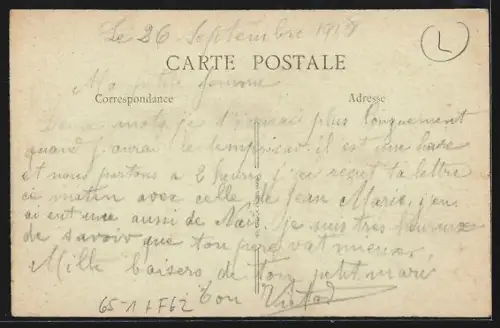 Le 26 Septembre 1918
L
CARTE POSTALE
Ma petite femme
Correspondance
Adresse
Deux mots je t'écrirai plus longuement
quand j'aurai le temps il est une heure
et nous partons a 2 heures j'ai reçut ta lettre
ce matin avec celle de Jean Marie, j'en
ai eut une aussi de je suis tres heureux
de savoir que ton pere vat mieux,
Mille baisers de ton petit mari
Ton
65-1 + F62